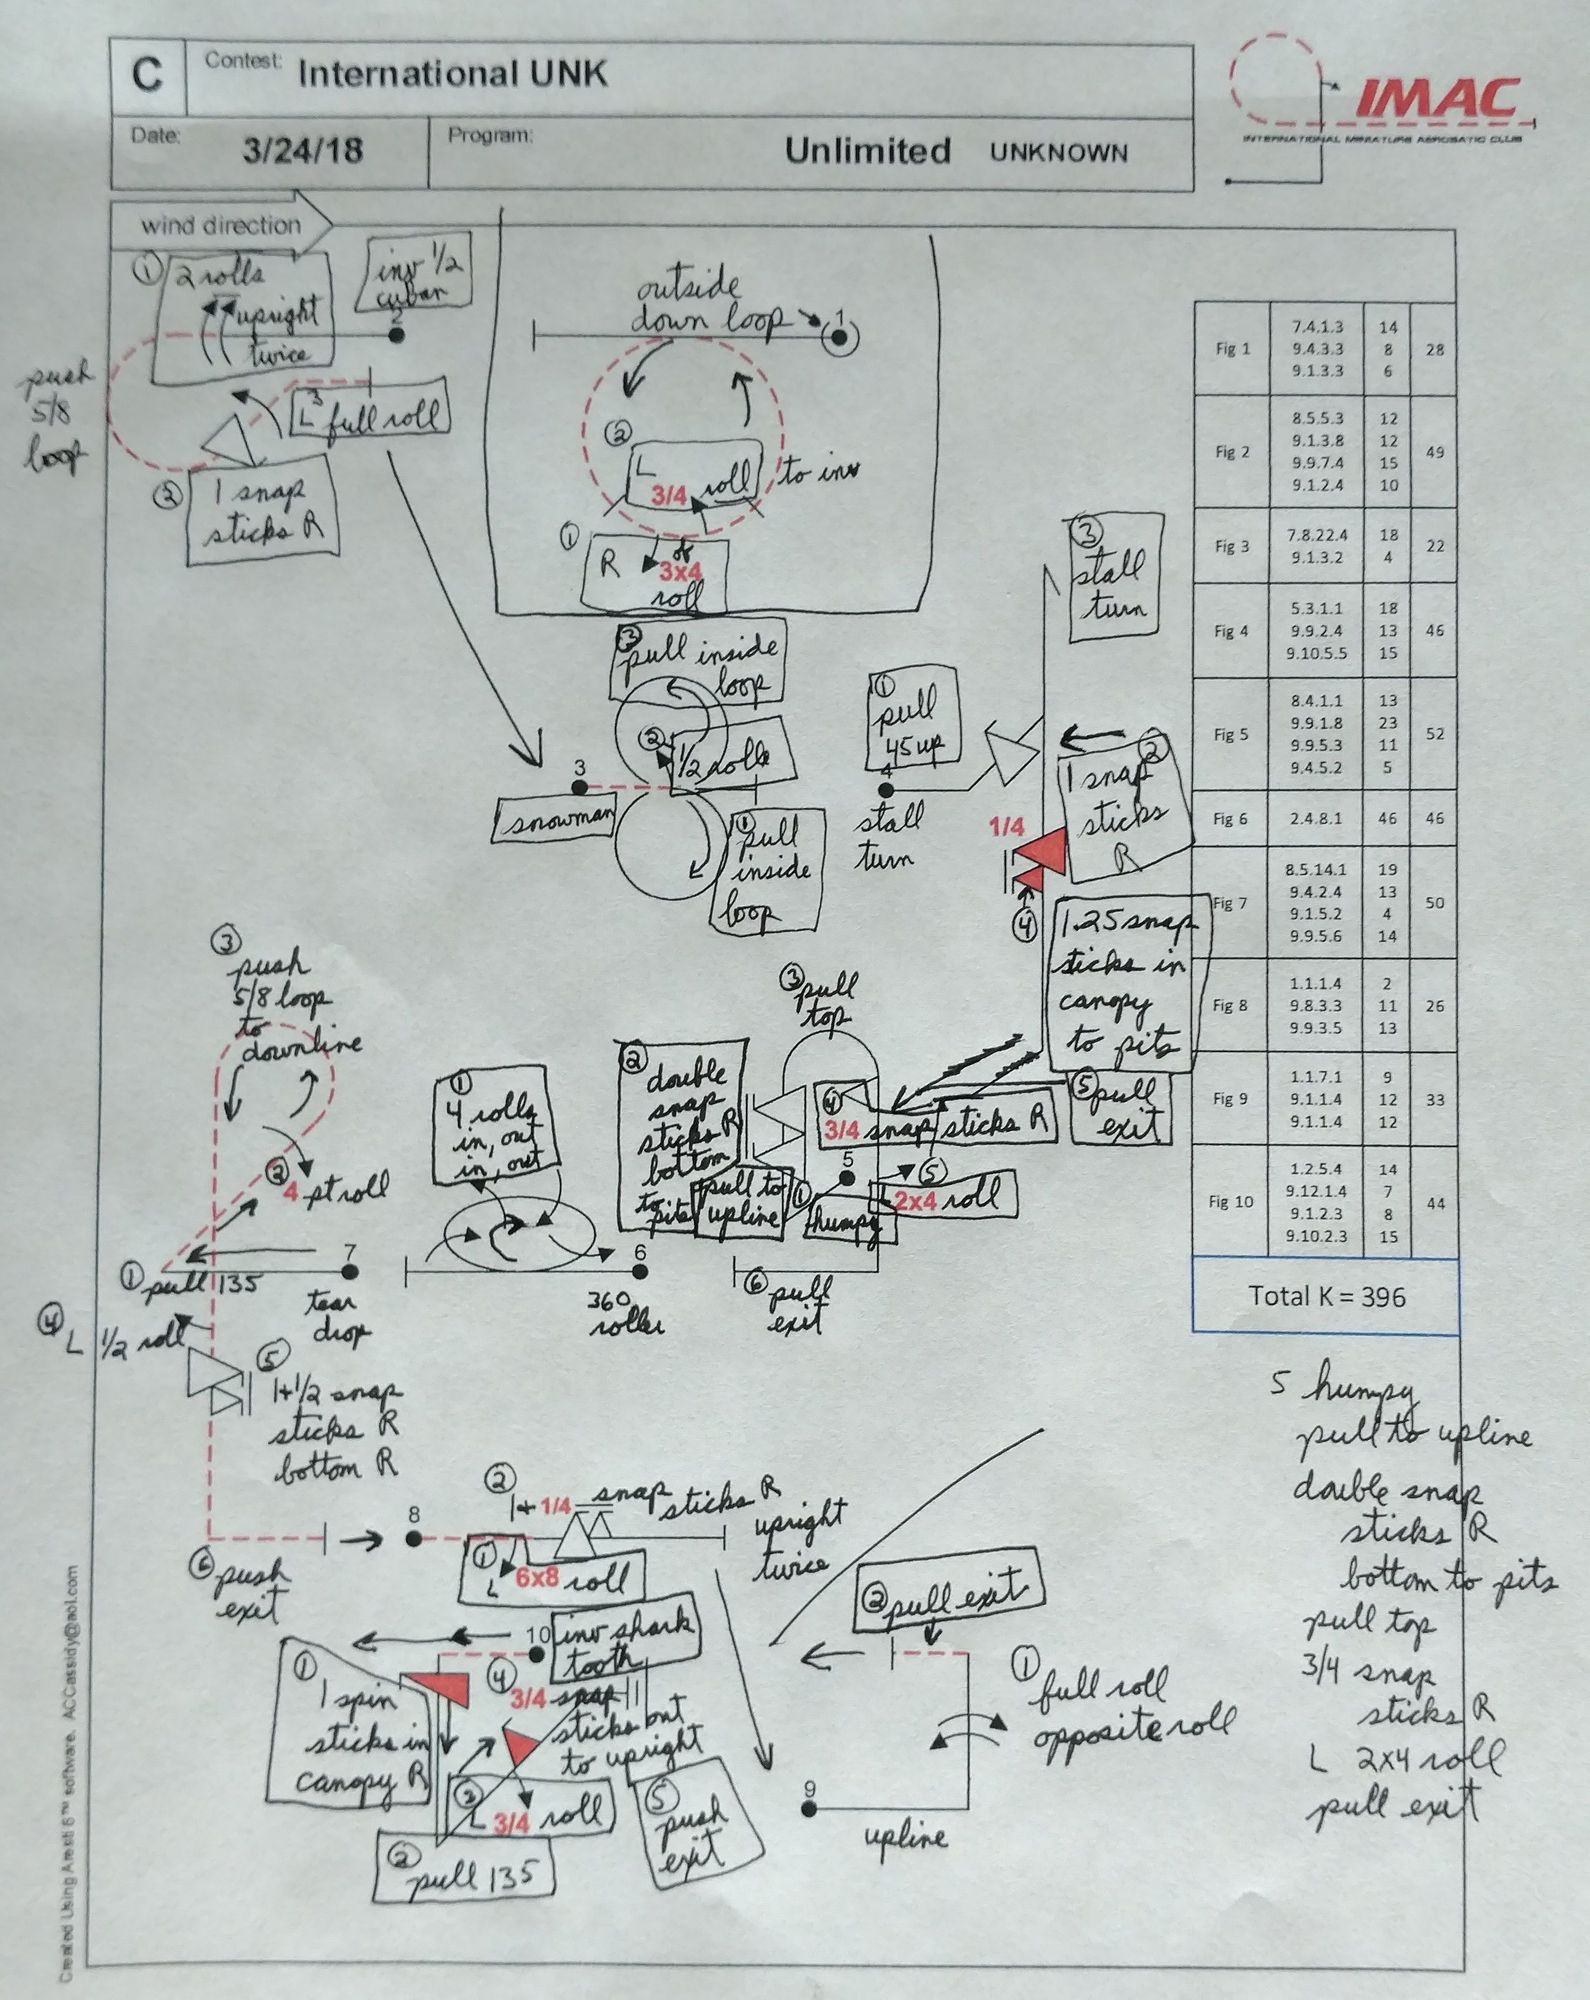 C
Contest: International UNK
Date: 3/24/18
Program: Unlimited UNKNOWN
IMAC
INTERNATIONAL MINIATURE AEROBATIC CLUB
wind direction
① 2 rolls
upright
twice
inv 1/2
cuban
2
push
5/8
loop
3
L full roll
② 1 snap
sticks R
outside
down loop
1
②
L
3/4 roll
to inv
①
R
of
3x4
roll
③
pull inside
loop
② 1/2 rolls
3
snowman
①
pull
inside
loop
①
pull
45 up
4
stall
turn
③
stall
turn
②
1 snap
sticks
R
1/4
④
1.25 snap
sticks in
canopy
to pits
③
push
5/8 loop
to
downline
②
4 pt roll
7
① pull 135
tear
drop
④ L 1/2 roll
⑤
1+1/2 snap
sticks R
bottom R
⑥ push
exit
①
4 rolls
in, out
in, out
6
360
roller
②
double
snap
sticks R
bottom
to
pits
① pull to
upline
③ pull
top
④
3/4 snap sticks R
5
humpy
⑤
L 2x4 roll
⑤ pull
exit
⑥ pull
exit
8
②
1+ 1/4 snap sticks R
upright
twice
①
L 6x8 roll
10
inv shark
tooth
①
1 spin
sticks in
canopy R
④
3/4 snap
sticks out
to upright
②
L 3/4 roll
②
pull 135
⑤
push
exit
② pull exit
①
full roll
opposite roll
9
upline
Fig 1
7.4.1.3 14
9.4.3.3 8
9.1.3.3 6
28
Fig 2
8.5.5.3 12
9.1.3.8 12
9.9.7.4 15
9.1.2.4 10
49
Fig 3
7.8.22.4 18
9.1.3.2 4
22
Fig 4
5.3.1.1 18
9.9.2.4 13
9.10.5.5 15
46
Fig 5
8.4.1.1 13
9.9.1.8 23
9.9.5.3 11
9.4.5.2 5
52
Fig 6
2.4.8.1 46
46
Fig 7
8.5.14.1 19
9.4.2.4 13
9.1.5.2 4
9.9.5.6 14
50
Fig 8
1.1.1.4 2
9.8.3.3 11
9.9.3.5 13
26
Fig 9
1.1.7.1 9
9.1.1.4 12
9.1.1.4 12
33
Fig 10
1.2.5.4 14
9.12.1.4 7
9.1.2.3 8
9.10.2.3 15
44
Total K = 396
5 humpy
pull to upline
double snap
sticks R
bottom to pits
pull top
3/4 snap
sticks R
L 2x4 roll
pull exit
Created Using Aresti 6™ software. ACCassidy@aol.com